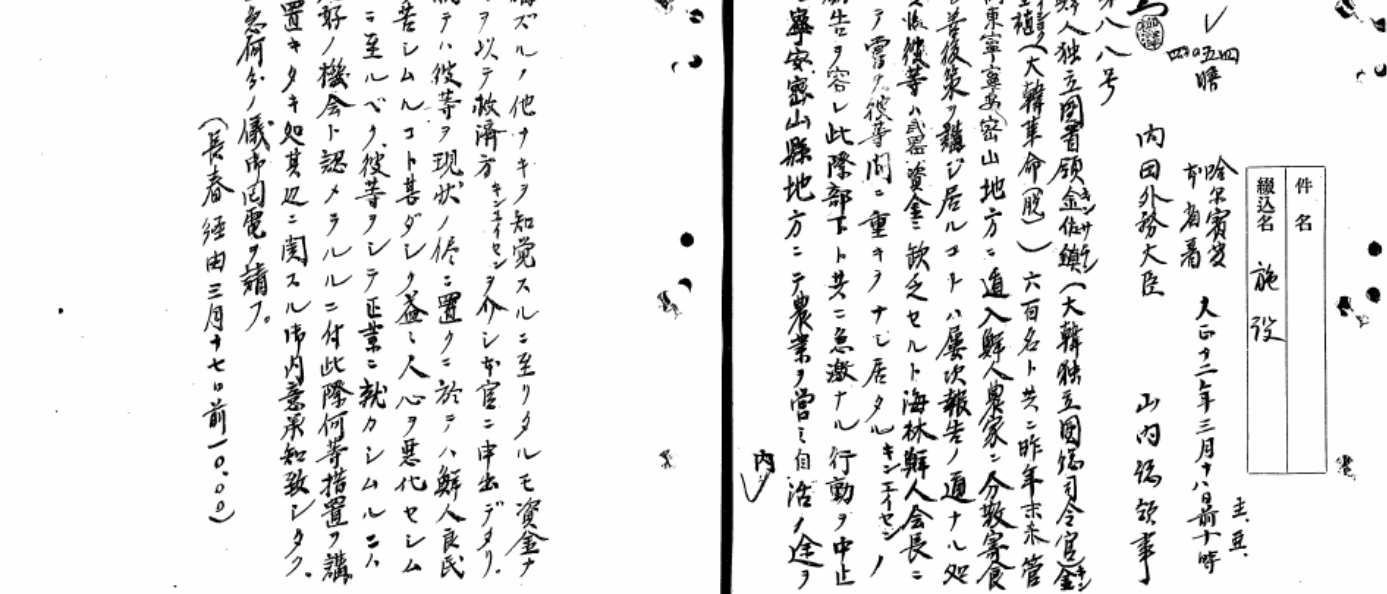 件名
綴込名 施設
主、亞、
大正十二年三月十八日前十時
哈尔賓発
本省着
内田外務大臣 山内総領事
四〇五四 暗
第八八号
鮮人独立団首領金佐鎮(大韓独立団総司令官)金
(大韓革命(脱))六百名ト共ニ昨年末来管
内東寧寧安密山地方ニ遁入鮮人農家ニ分散寄食
善後策ヲ講ジ居ルコトハ屡次報告ノ通ナル処
彼等ハ武器資金ニ欠乏セルト海林鮮人会長ニ
テ当ナ彼等間ニ重キヲナシ居タルキンエイセンノ
勧告ヲ容レ此際部下ト共ニ急激ナル行動ヲ中止
シ寧安密山縣地方ニテ農業ヲ営ミ自活ノ途ヲ
内
講ズルノ他ナキヲ知覚スルニ至リタルモ資金ナ
ヲ以テ救済方キンエイセンヲ介シ本官ニ申出デタリ。
テハ彼等ヲ現状ノ侭ニ置クニ於テハ鮮人良民
苦シムルコト甚ダシク益々人心ヲ悪化セシム
ニ至ルベク、彼等ヲシテ正業ニ就カシムルニハ
好ノ機会ト認メラルルニ付此際何等措置ヲ講
置キタキ処其辺ニ関スル御内意承知致シタク。
急何分ノ儀御回電ヲ請フ。
(長春経由三月十七日前一〇、〇〇)